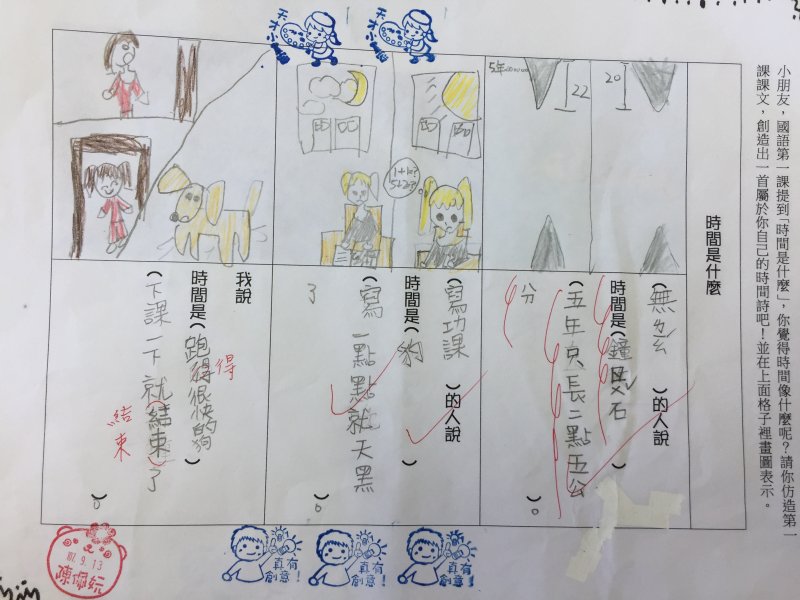 小朋友，國語第一課提到「時間是什麼」，你覺得時間像什麼呢？請你仿造第一
課課文，創造出一首屬於你自己的時間詩吧！並在上面格子裡畫圖表示。
時間是什麼
20
22
5年
（無 ）的人說
時間是（鐘 石）
（五年只長二點五公
分 ）。
（寫功課 ）的人說
時間是（豹 ）
（寫一點點就天黑
了 ）。
我說
時間是（跑得很快的狗）
得
（下課一下就結束了 ）。
結束
真有
創意！
真有
創意！
真有
創意！
9.13